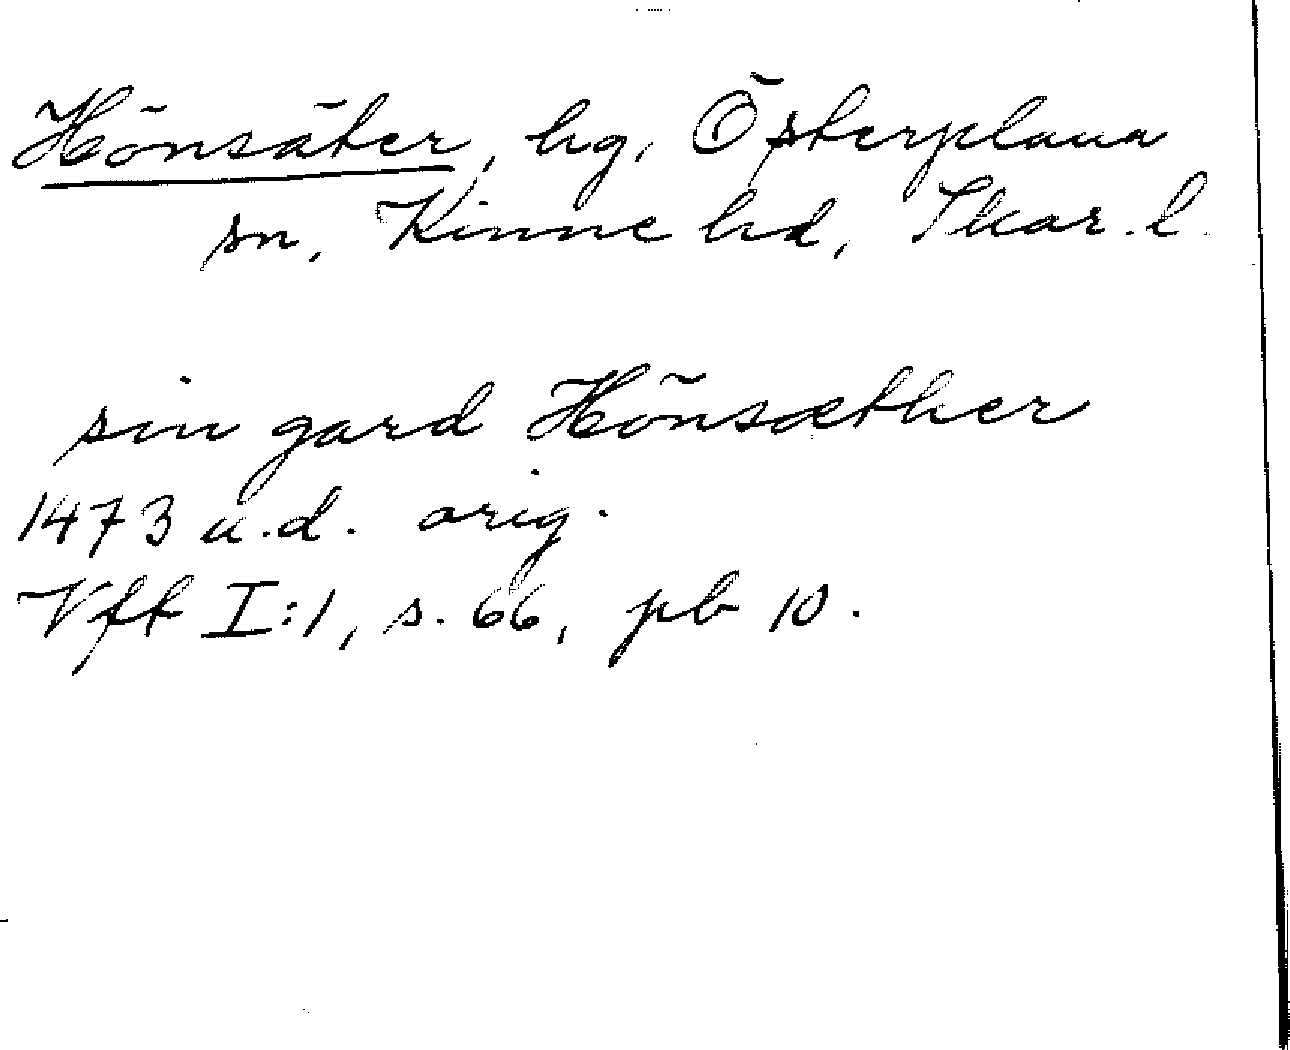 Hönsäter, hg, Österplana
sn, Kinne hd, Skar. l.
sin gard Hönsæther
1473 u.d. orig.
Vff I:1, s. 66, pb 10.